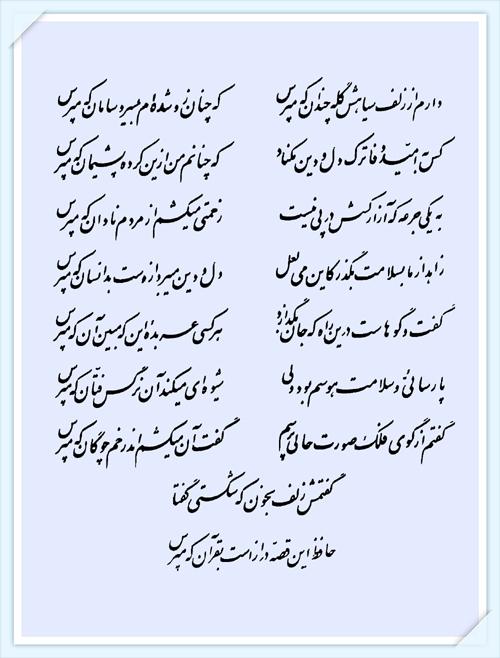 دارم از زلف سیاهش گله چندان که مپرس که چنان زو شده‌ام بی سر و سامان که مپرس
کس به امید وفا ترک دل و دین مکناد که چنانم من ازین کرده پشیمان که مپرس
به یکی جرعه که آزار کسش در پی نیست زحمتی میکشم از مردم نادان که مپرس
زاهد از ما بسلامت بگذر کاین می لعل دل و دین میبرد از دست بدانسان که مپرس
گفت و گو هاست درین راه که جان بگدازد هر کسی عربده‌ای این که مبین آن که مپرس
پارسائی و سلامت هوسم بود ولی شیوه‌ای میکند آن نرگس فتان که مپرس
گفتم از گوی فلک صورت حالی پرسم گفت آن میکشم اندر خم چوگان که مپرس
گفتمش زلف بخون که شکستی گفتا
حافظ این قصه دراز است بقرآن که مپرس